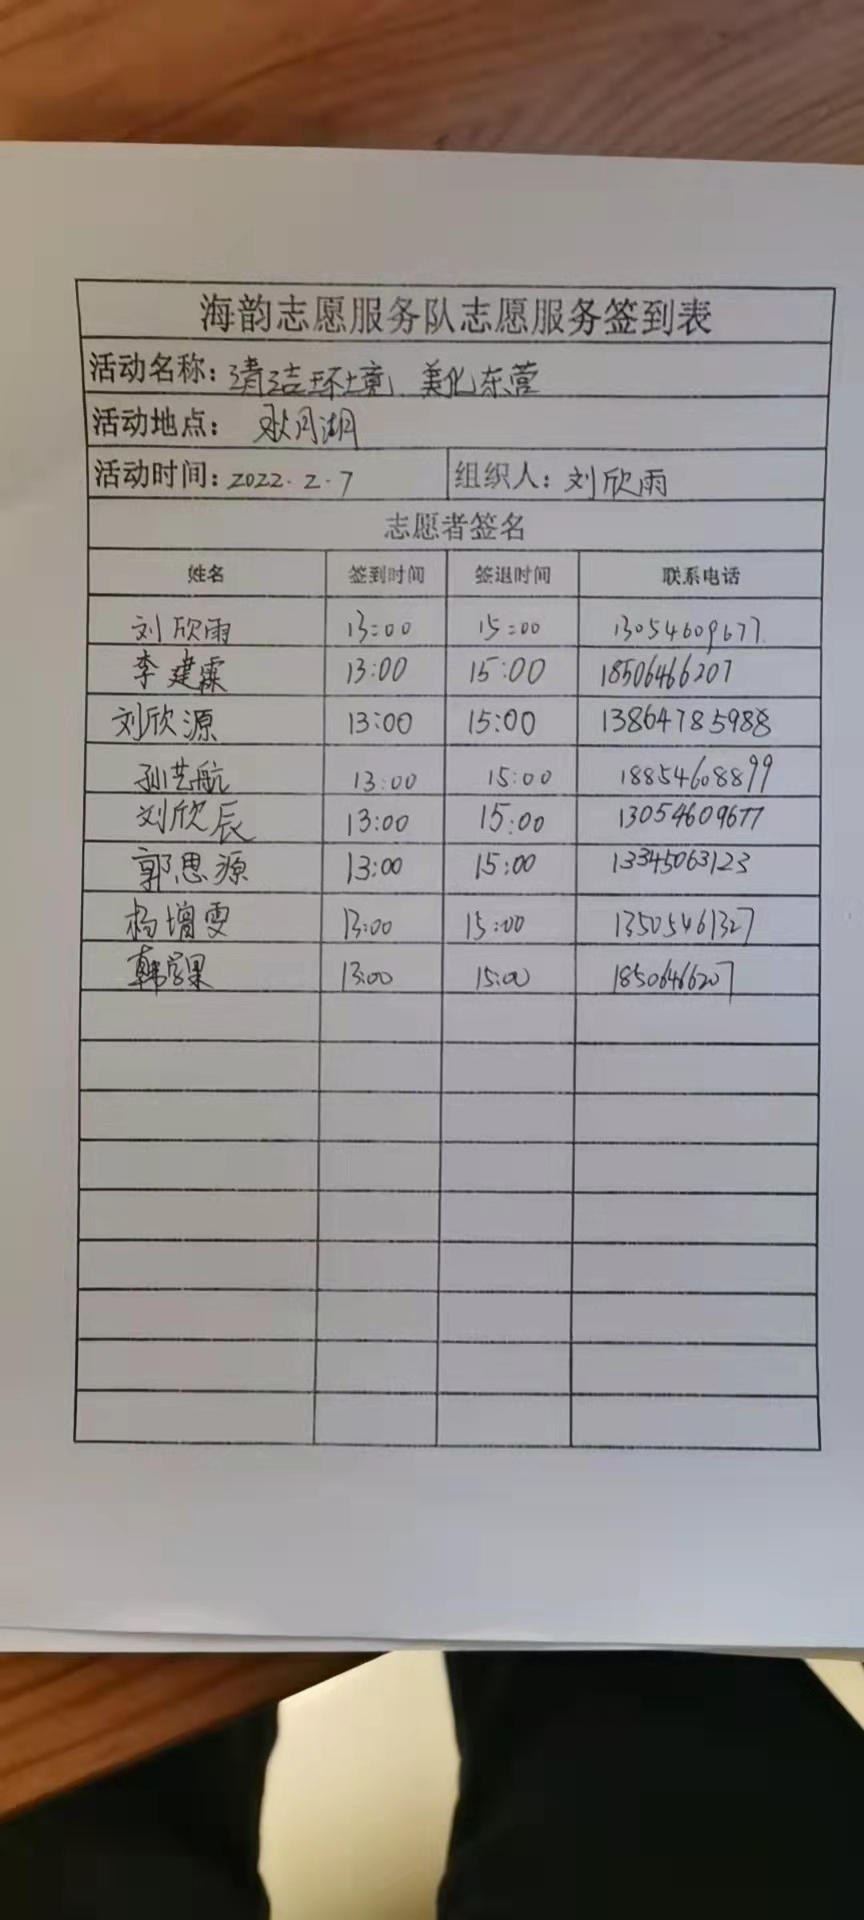 海韵志愿服务队志愿服务签到表
活动名称：清洁环境 美化东营
活动地点： 耿月湖
活动时间：2022.2.7 组织人：刘欣雨
志愿者签名
姓名 签到时间 签退时间 联系电话
刘欣雨 13:00 15:00 13054609677
李建霖 13:00 15:00 18506466207
刘欣源 13:00 15:00 13864785988
孙艺航 13:00 15:00 18854608899
刘欣辰 13:00 15:00 13054609677
郭思源 13:00 15:00 13345063123
杨增雯 13:00 15:00 13505461327
韩学果 13:00 15:00 18506466207